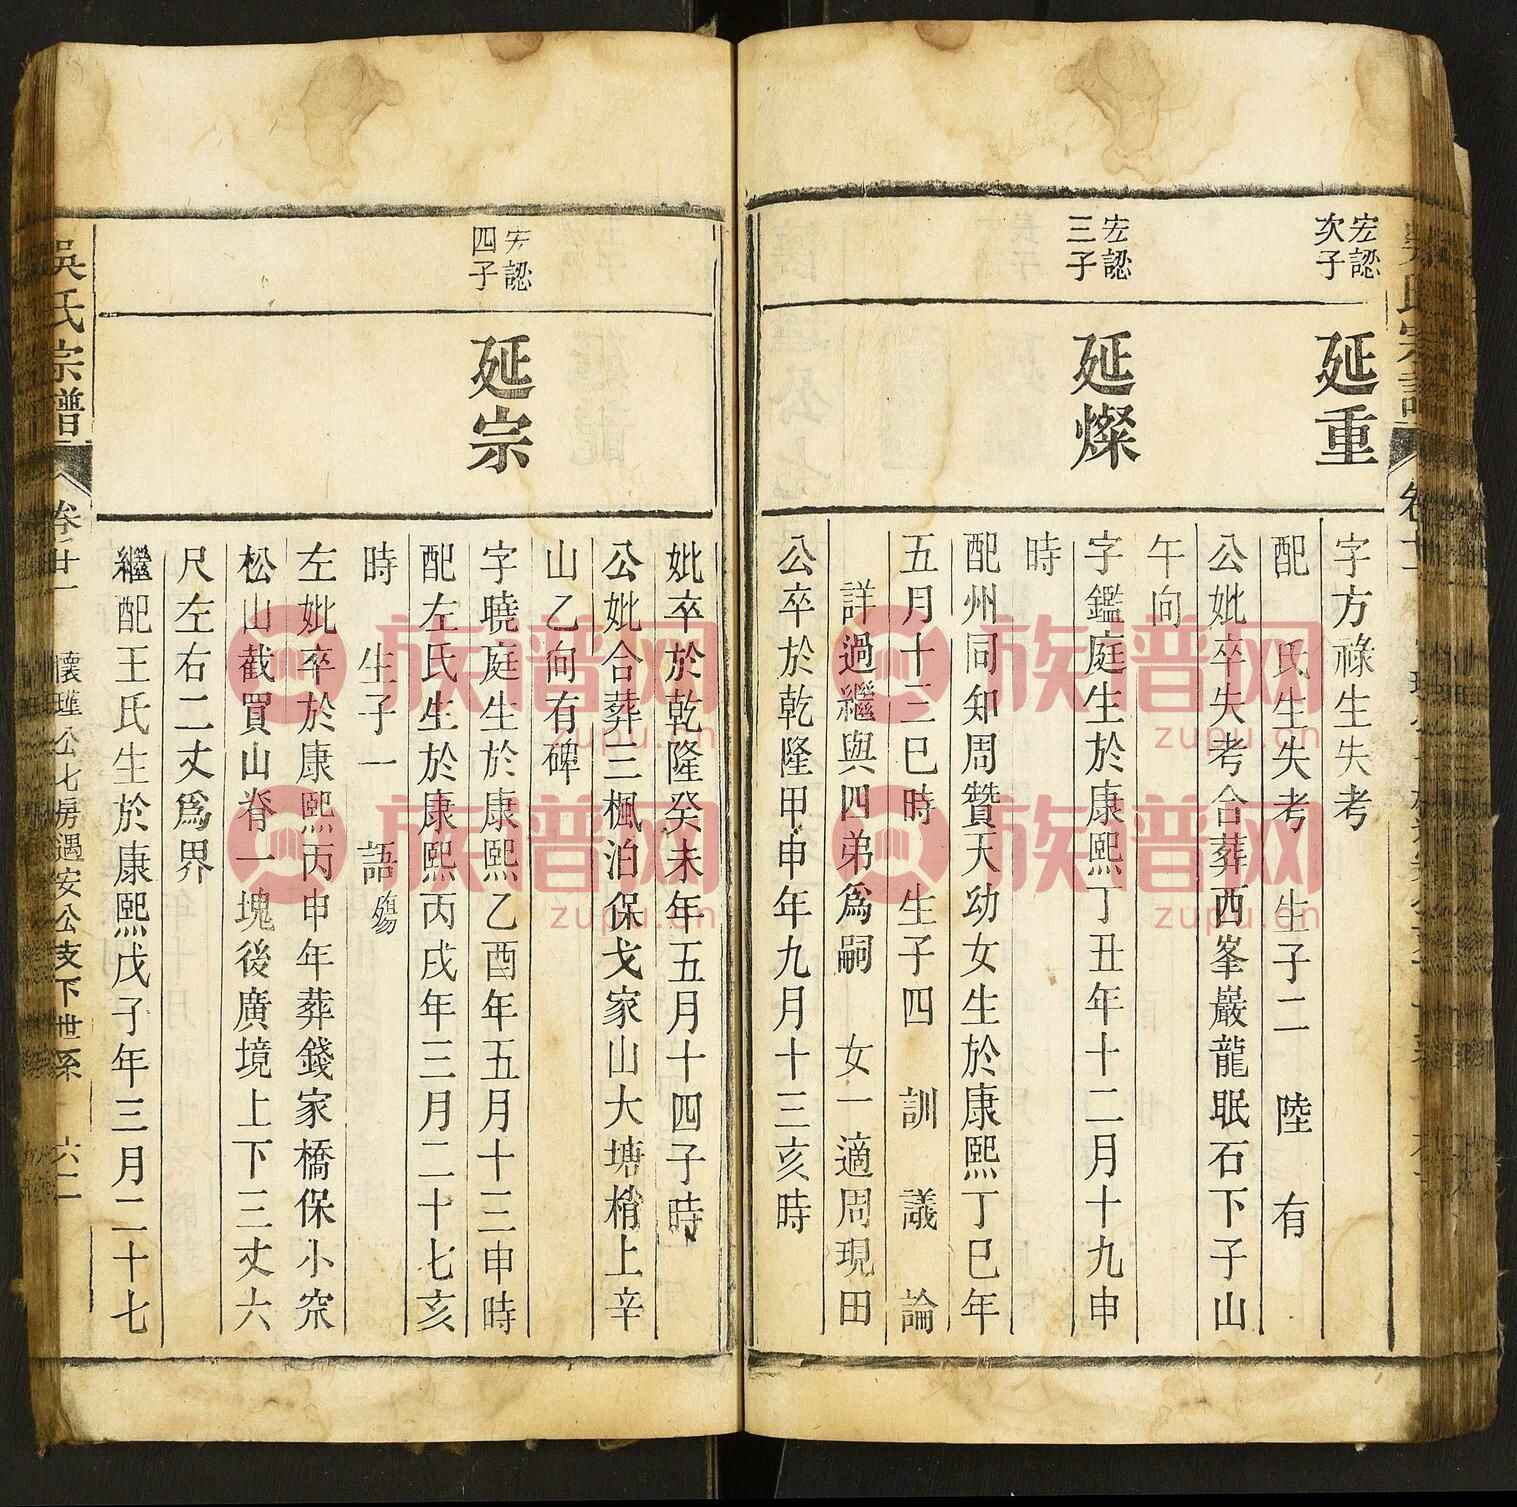 宏認
次子
延重
字方祿生失考
配　氏生失考　生子二　陸　有
公妣卒失考合葬西峯巖龍眠石下子山
午向
宏認
三子
延燦
字鑑庭生於康熙丁丑年十二月十九申
時
配州同知周贊天幼女生於康熙丁巳年
五月十三巳時　生子四　訓　議　論
詳過繼與四弟爲嗣　女一適周現田
公卒於乾隆甲申年九月十三亥時
妣卒於乾隆癸未年五月十四子時
公妣合葬三楓泊保戈家山大塘梢上辛
山乙向有碑
宏認
四子
延宗
字曉庭生於康熙乙酉年五月十三申時
配左氏生於康熙丙戌年三月二十七亥
時　生子一　語殤
左妣卒於康熙丙申年葬錢家橋保小冞
松山截買山脊一塊後廣境上下三丈六
尺左右二丈爲界
繼配王氏生於康熙戊子年三月二十七
吳氏宗譜
卷廿一
懷瑾公七房遇安公支下世系
六二
族谱网
zupu.cn
族谱网
zupu.cn
族谱网
zupu.cn
族谱网
zupu.cn